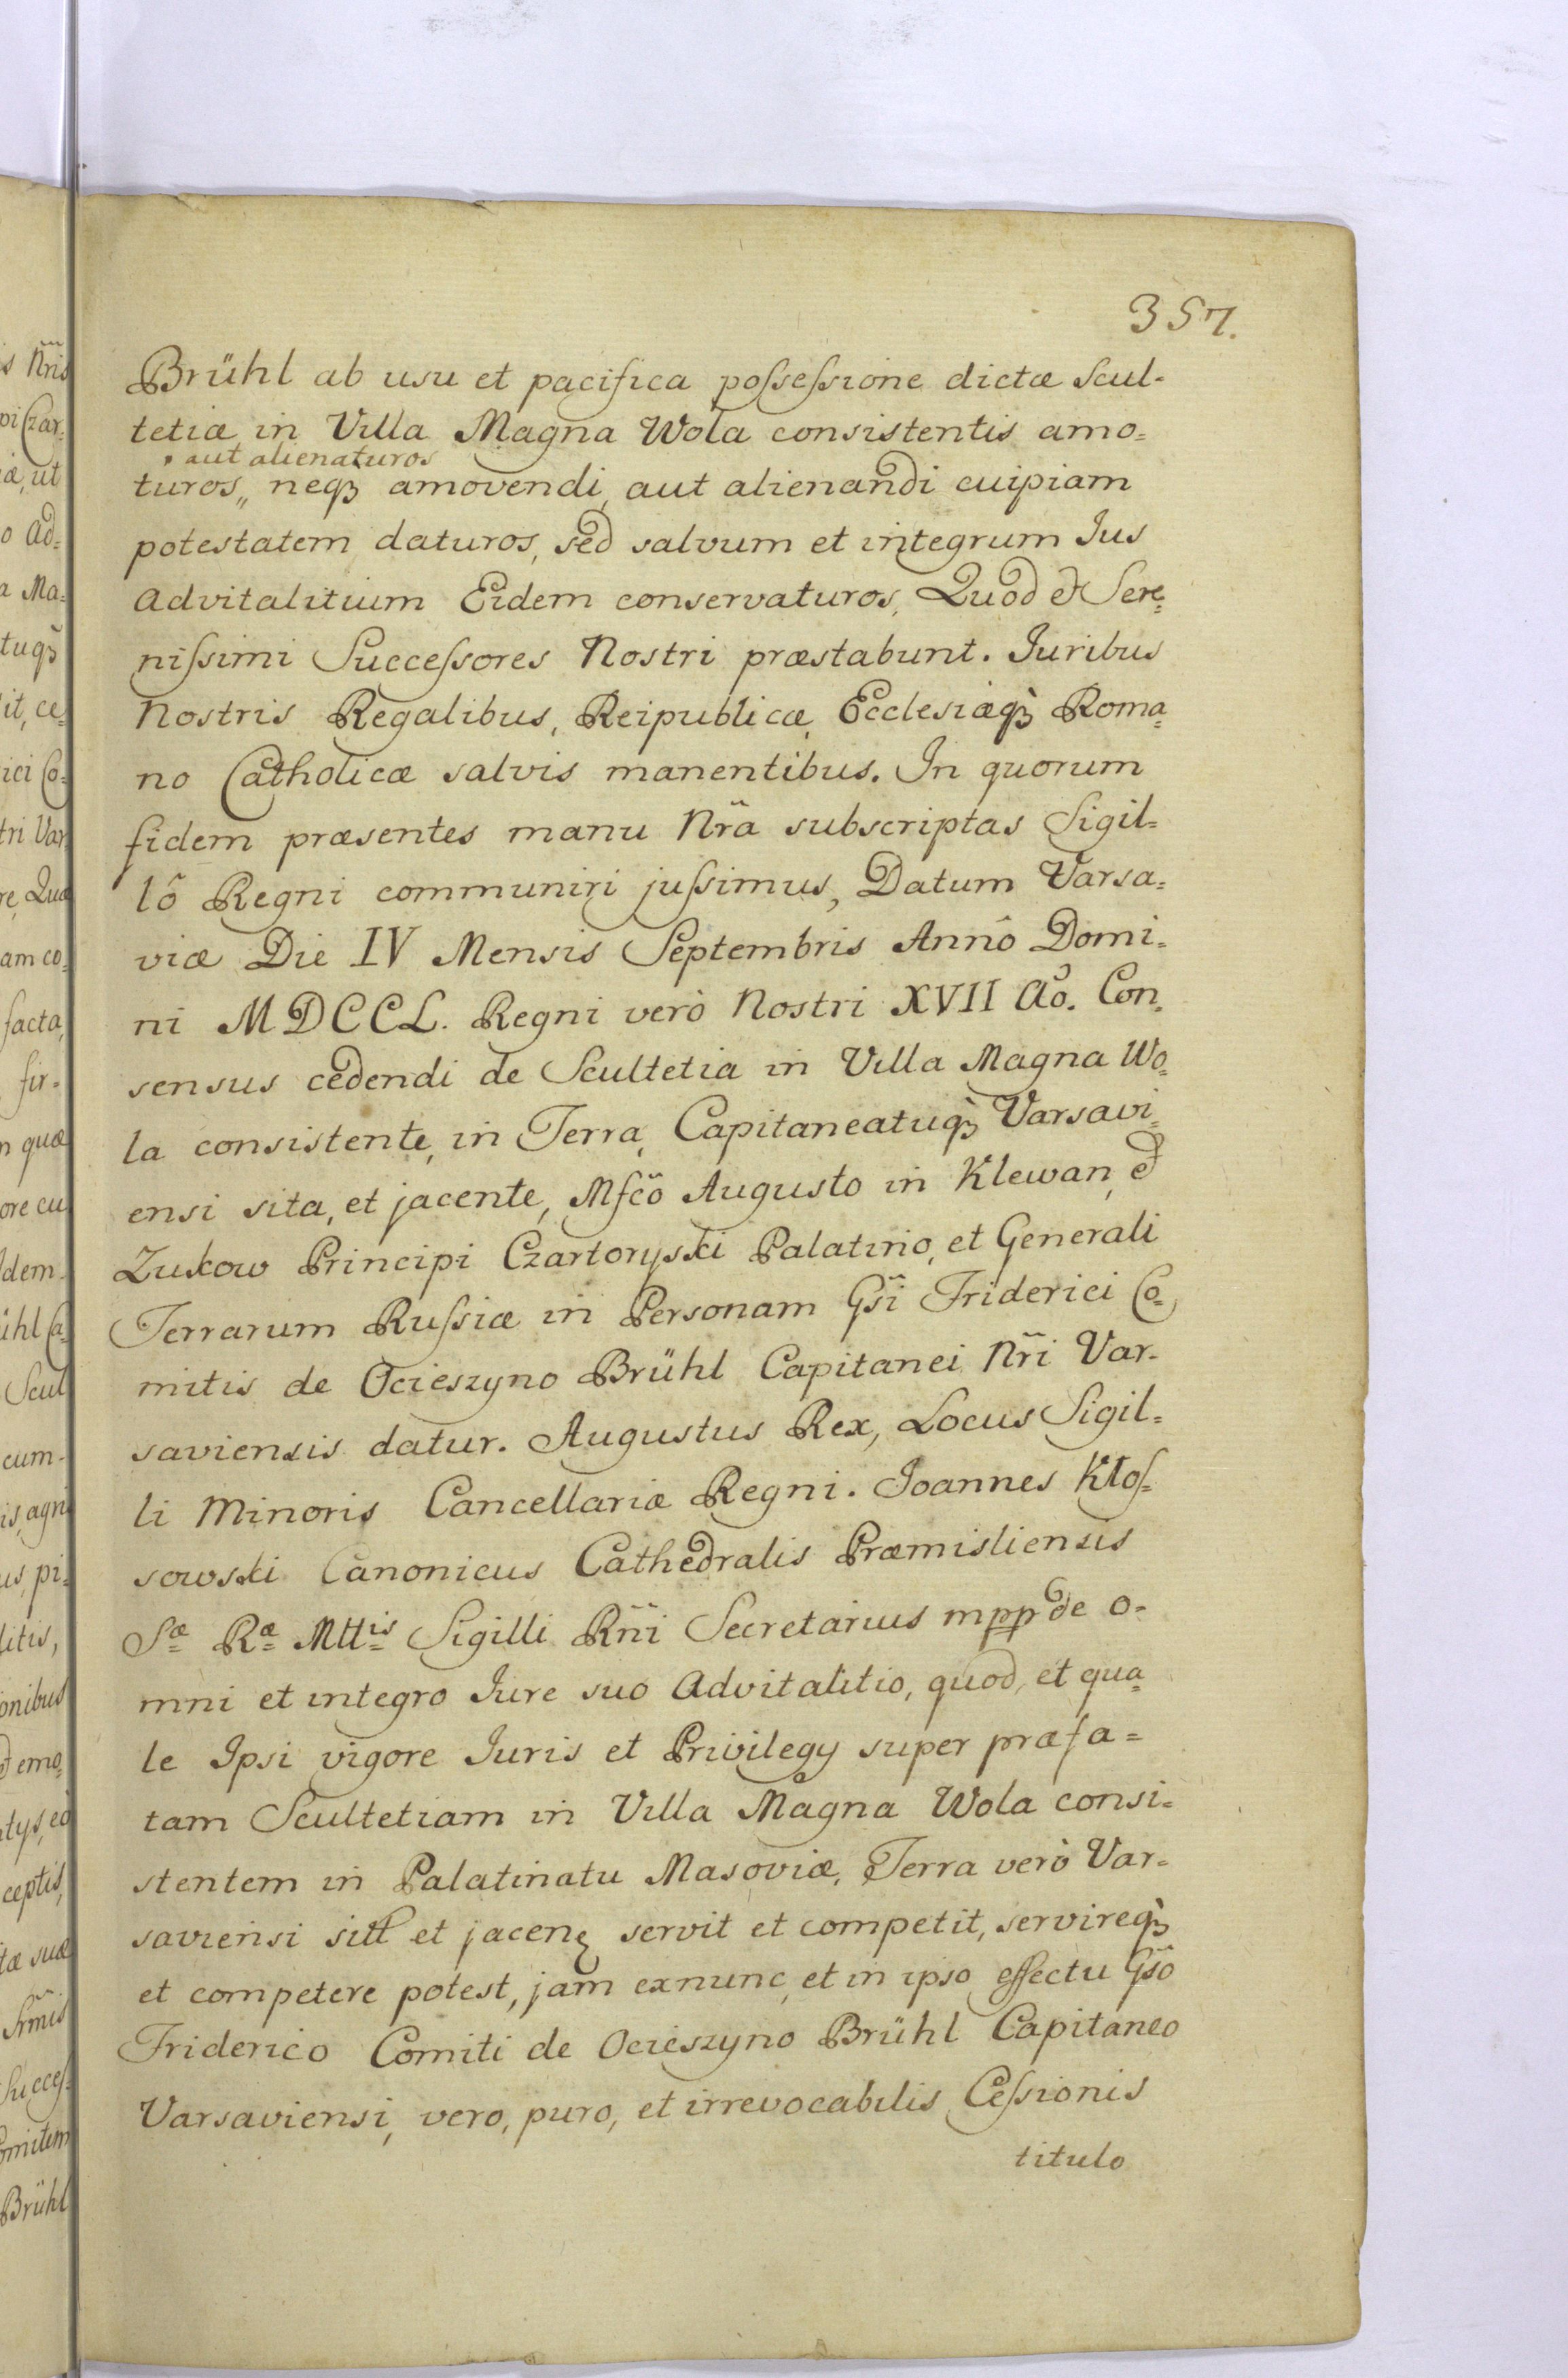 357.
Brühl ab usu et pacifica possessione dictæ Scul-
tetiæ in Villa Magna Wola consistentis amo=
aut alienaturos
turos,, neqꝫ amovendi, aut alienandi cuipiam
potestatem daturos, sed salvum et integrum Jus
Advitalitium Eidem conservaturos, Quod & Sere=
nissimi Successores Nostri præstabunt. Juribus
Nostris Regalibus, Reipublicæ, Ecclesiæqꝫ Roma=
no Catholicæ salvis manentibus. In quorum
fidem præsentes manu Nr̃a subscriptas Sigil=
lô Regni communiri jussimus, Datum Varsa=
viæ Die IV Mensis Septembris Annô Domi=
ni MDCCL. Regni verò Nostri XVII Aõ. Con=
sensus cedendi de Scultetia in Villa Magna Wo=
la consistente, in Terra, Capitaneatuqꝫ Varsavi=
ensi sita, et jacente, Mfcõ Augusto in Klewan, &
Zukow Principi Czartoryski Palatino, et Generali
Terrarum Russiæ in Personam Gsĩ Friderici Co=
mitis de Ocieszyno Brühl Capitanei Nr̃i Var-
saviensis datur. Augustus Rex, Locus Sigil=
li Minoris Cancellariæ Regni. Joannes Kłos=
sowski Canonicus Cathedralis Præmisliensis
Sæ Ræ Mttis Sigilli Rñi Secretarius mpp de o-
mni et integro Jure suo Advitalitio, quod, et qua=
le Ipsi vigore Juris et Privilegy super præfa=
tam Scultetiam in Villa Magna Wola consi=
stentem in Palatinatu Masoviæ, Terra verò Var=
saviensi sitt et jacenę servit et competit, servireqꝫ
et competere potest, jam exnunc, et in ipso effectu Gsõ
Friderico Comiti de Ocieszyno Brühl Capitaneo
Varsaviensi, vero, puro, et irrevocabilis Cessionis
titulo